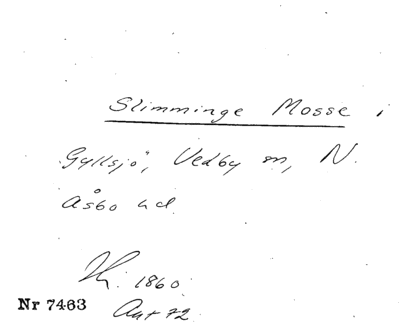 Slimminge Mosse i
Gyllsjö, Vedby sn, N.
Åsbo hd.
1860
Nr 7463
Ant 72